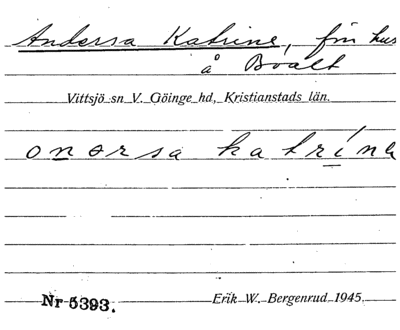 Andersa Katrine, fin hus
å Boalt
Vittsjö sn V. Göinge hd, Kristianstads län.
onərsa katrínə
Nr 5393.
Erik W. Bergenrud 1945.